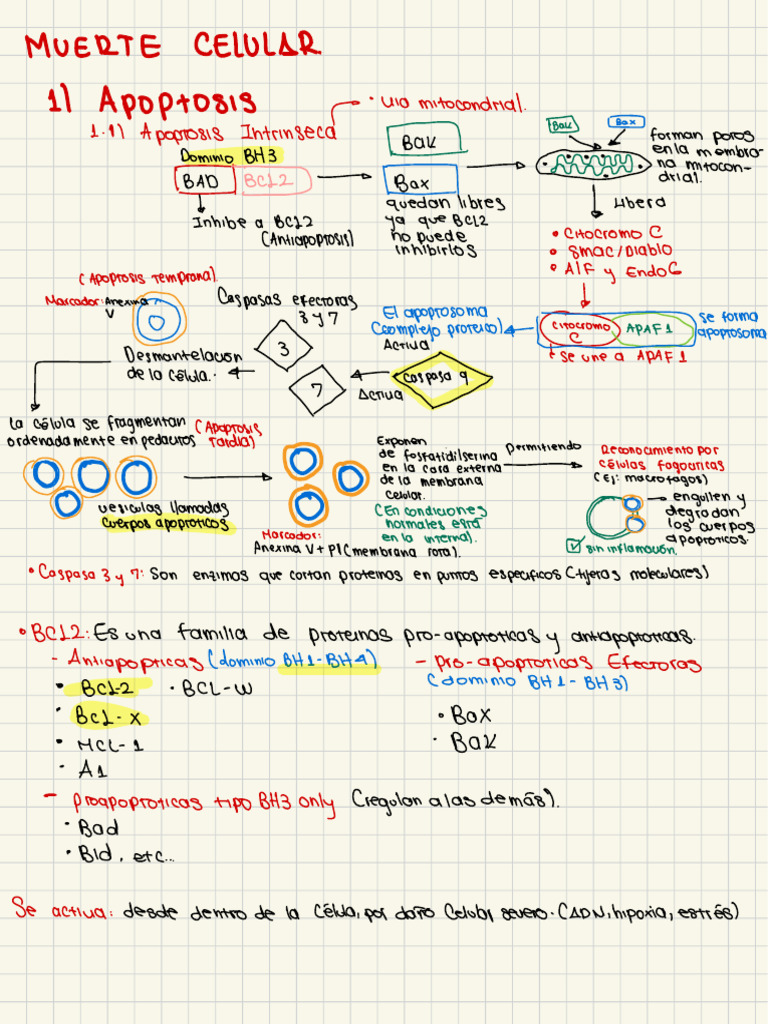 MUERTE CELULAR
1) Apoptosis
1.1) Apoptosis Intrínseca
· Via mitocondrial.
Dominio BH3
BAD BCL2
Inhibe a BCL2
(Antiapoptosis)
Bak
Bax
quedan libres
ya que BCL2
no puede
inhibirlos
Bak Bax
forman poros
en la membra-
na mitocon-
drial.
Libera
• Citocromo C
• Smac/Diablo
• AIF y Endo G
Citocromo C APAF1
se forma
apoptosoma
se une a APAF1
El apoptosoma
(complejo proteico)
Activa
Caspasa 9
Activa
Caspasas efectoras
3 y 7
3
7
(Apoptosis Temprana).
Marcador: Anexina
V
Desmantelacion
de la célula.
La célula se fragmentan
ordenadamente en pedazos
(Apoptosis
Tardia)
vesiculas llamadas
cuerpos apoptoticos
Marcador:
Anexina V + PI (membrana rota).
Exponen
de fosfatidilserina
en la cara externa
de la membrana
celular.
(En condiciones
normales esta
en la interna).
Permitiendo
Reconocimiento por
células fagociticas
(Ej: macrofagos)
engullen y
degradan
los cuerpos
apoptoticos.
sin inflamación.
• Caspasa 3 y 7: Son enzimas que cortan proteinas en puntos especificos (tijeras moleculares)
• BCL2: Es una familia de proteinas pro-apoptoticas y antiapoptoticas.
- Antiapopticas (dominio BH1-BH4)
• BCL-2 · BCL-W
· BCL-X
• MCL-1
· A1
- Pro-apoptoticas Efectoras
(dominio BH1-BH3)
• Bax
· Bak
- Proapoptoticas tipo BH3 only (regulan a las demás).
· Bad
• Bid, etc...
Se activa: desde dentro de la célula, por daño celular severo. (ADN, hipoxia, estrés)